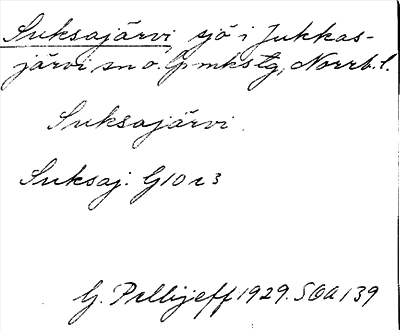 Suksajärvi sjö i Jukkas-
järvi sn o. Gp mkstg, Norrb. l.
Suksajärvi.
Suksaj. G10 r3
G. Pellijeff 1929. SOA 139